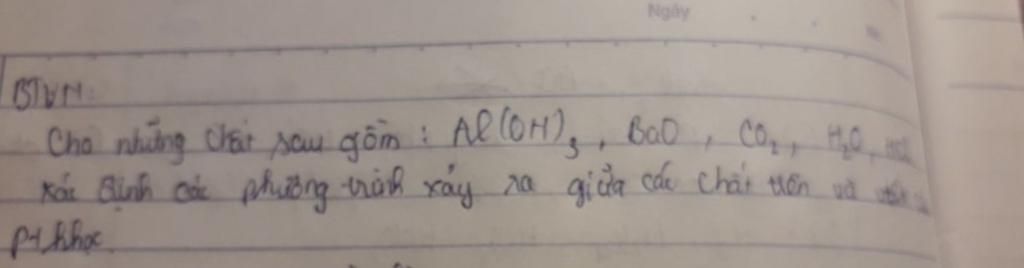 Ngày
BTVN:
Cho những chất sau gồm : Al(OH)₃, BaO, CO₂, H₂O, HCl
xác định các phương trình xảy ra giữa các chất trên và
pthhọc.